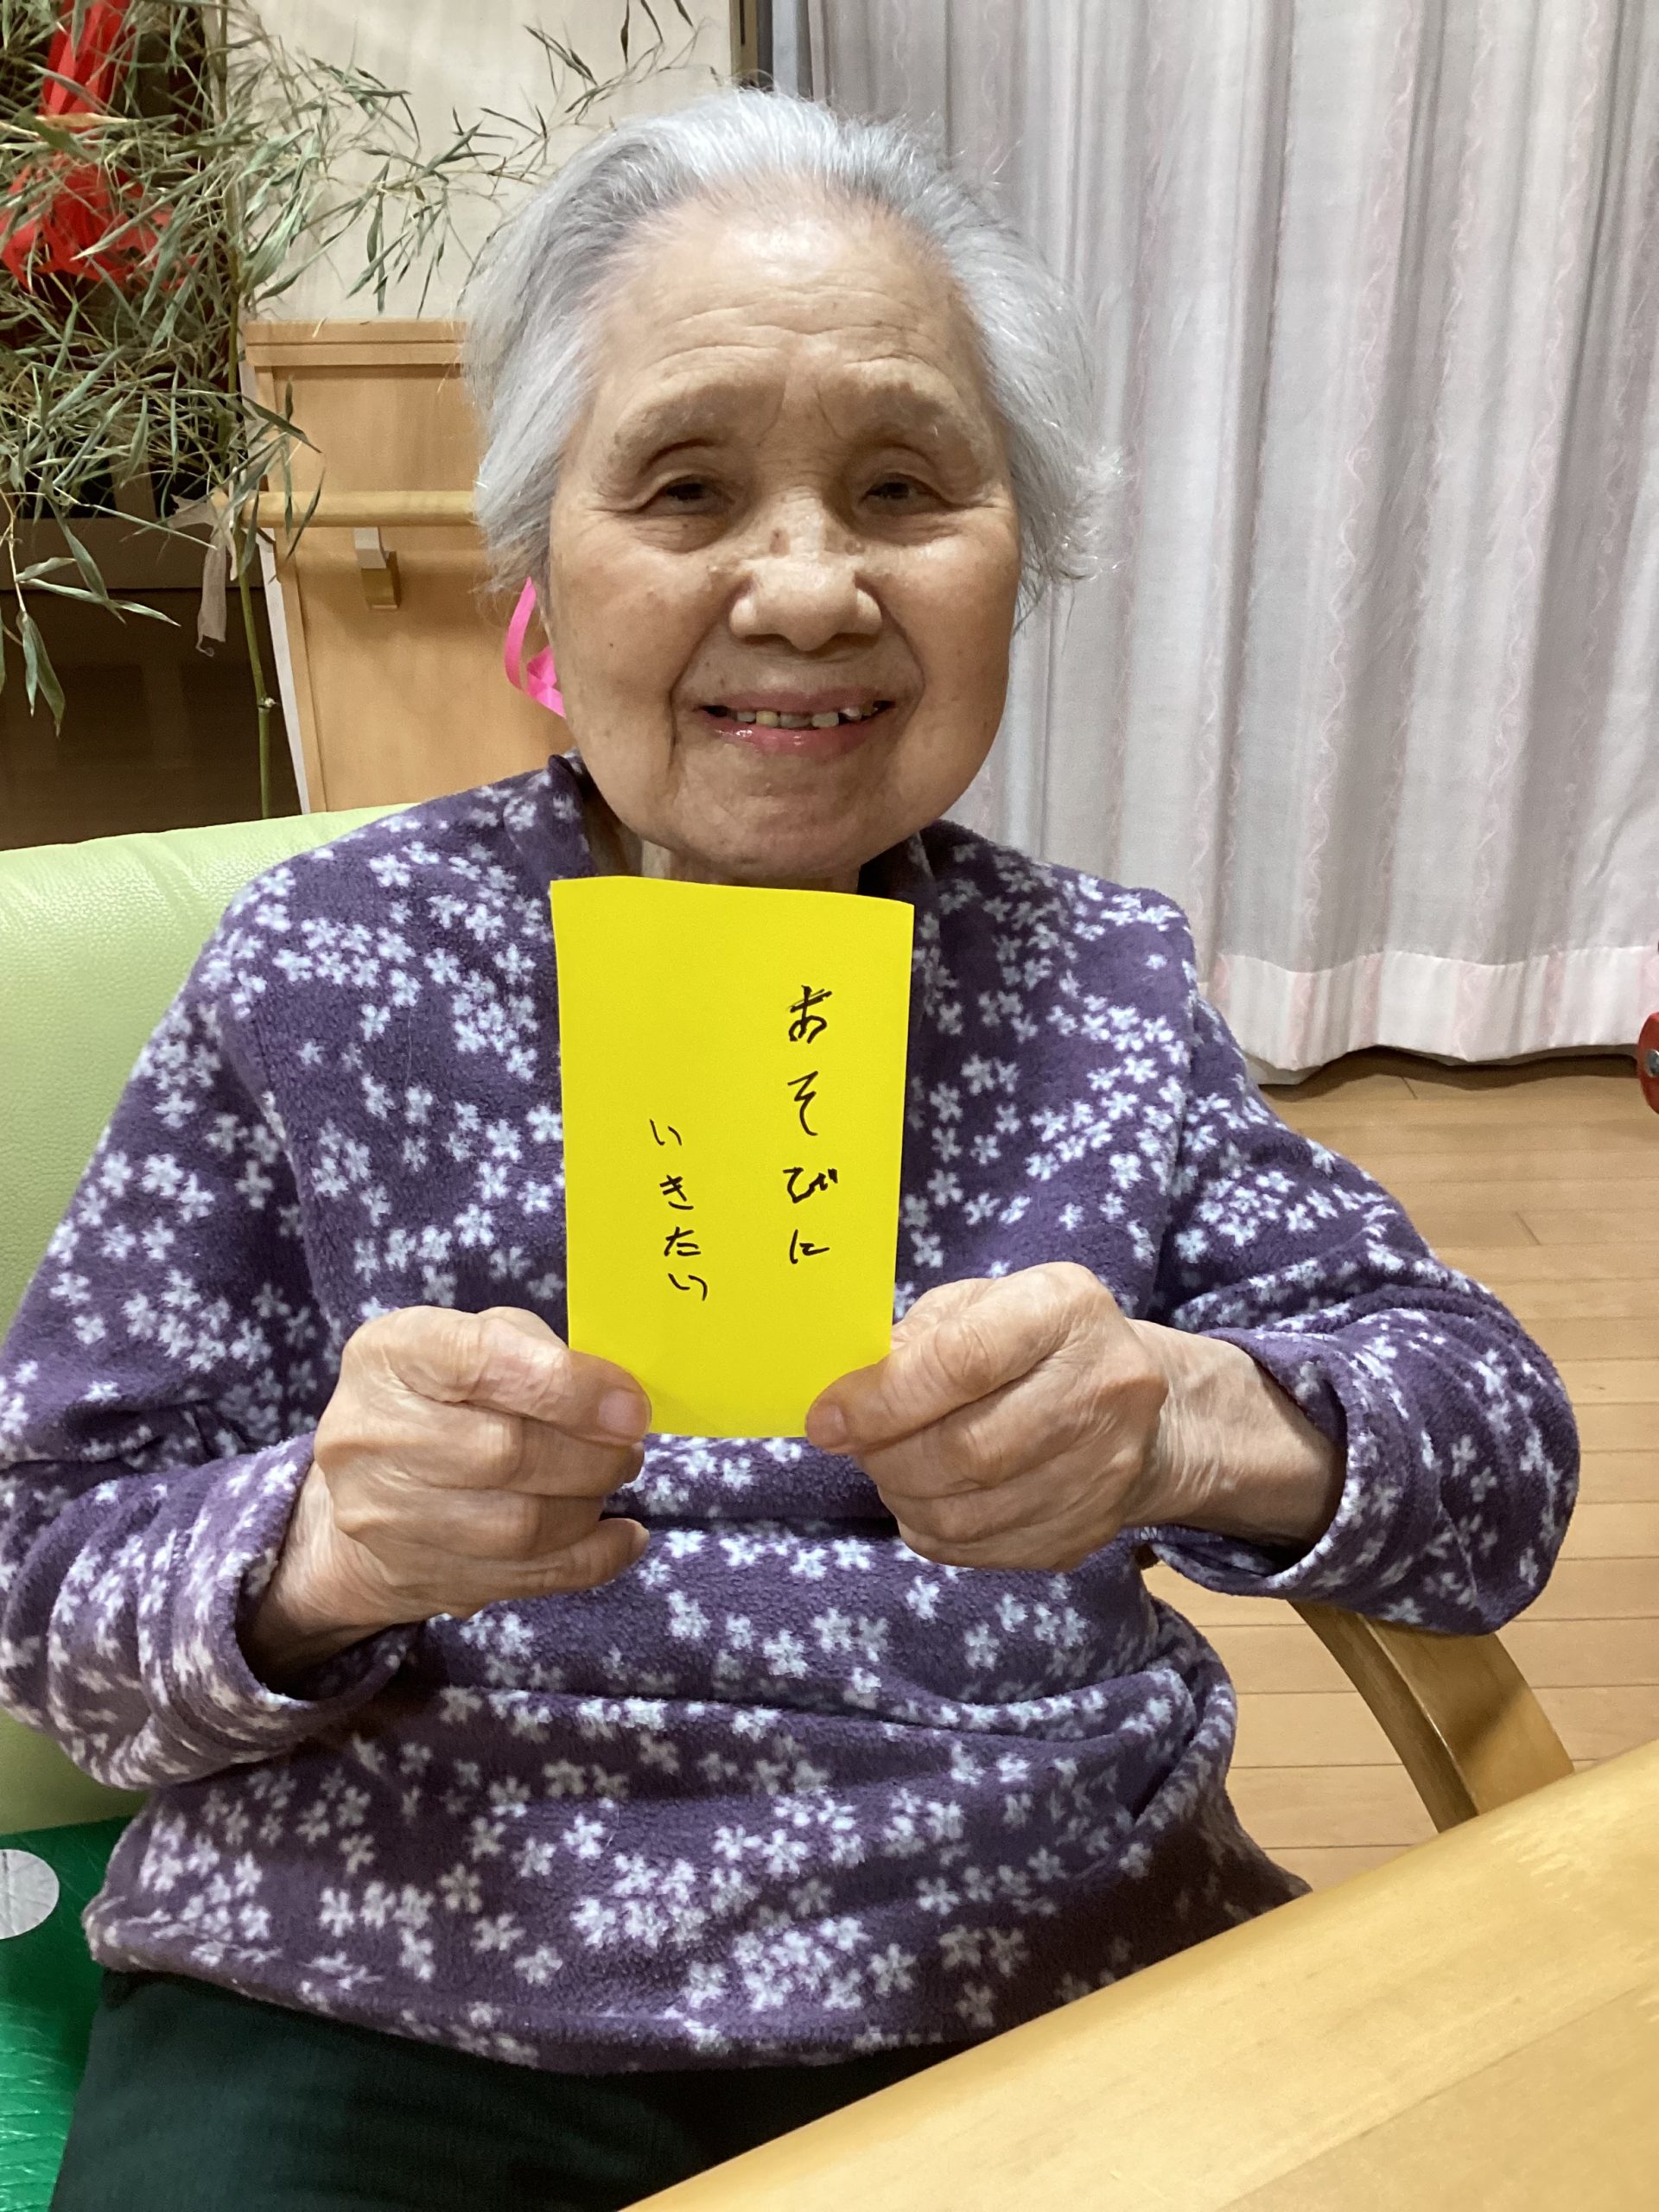 あそびに
いきたい